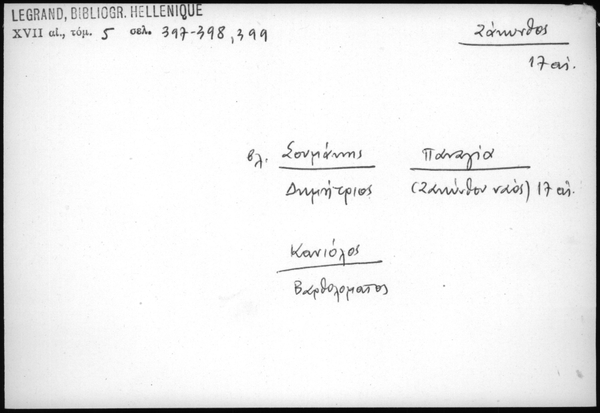 LEGRAND, BIBLIOGR. HELLENIQUE
XVII αἰ., τόμ. 5 σελ. 397-398, 399
Ζάκυνθος
17 αἰ.
βλ. Σουμάκης Παναγία
Δημήτριος (Ζακύνθου ναός) 17 αἰ.
Κανιόλος
Βαρθολομαῖος